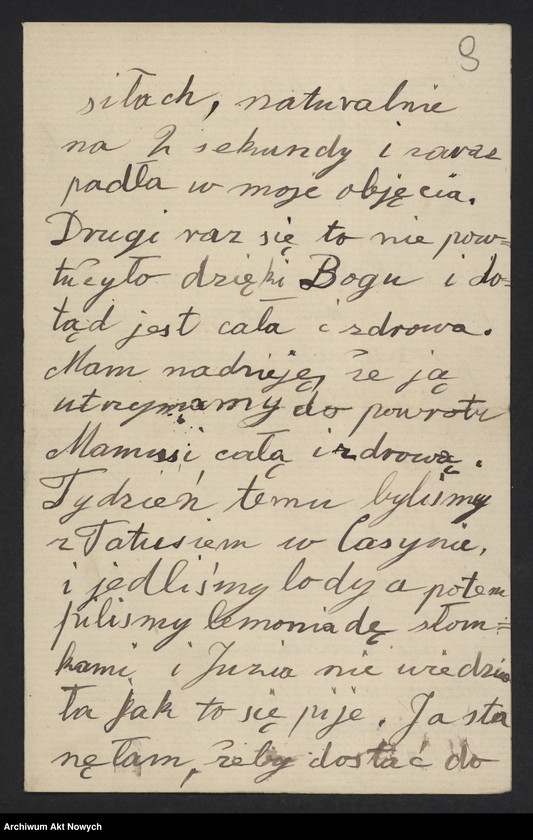 8
siłach, naturalnie
na 2 sekundy i zaraz
padła w moje objęcia.
Drugi raz się to nie pow=
tuczyło dzięki Bogu i do=
tąd jest cała i zdrowa.
Mam nadzieję, że ją
utrzymamy do powrotu
Mamusi całą i zdrową.
Tydzień temu byliśmy
z Tatusiem w Casynie,
i jedliśmy lody a potem
piliśmy lemoniadę słom=
kami i Juzia nie wiedzia
ła jak to się pije. Ja sta
nęłam, żeby dostać do
Archiwum Akt Nowych